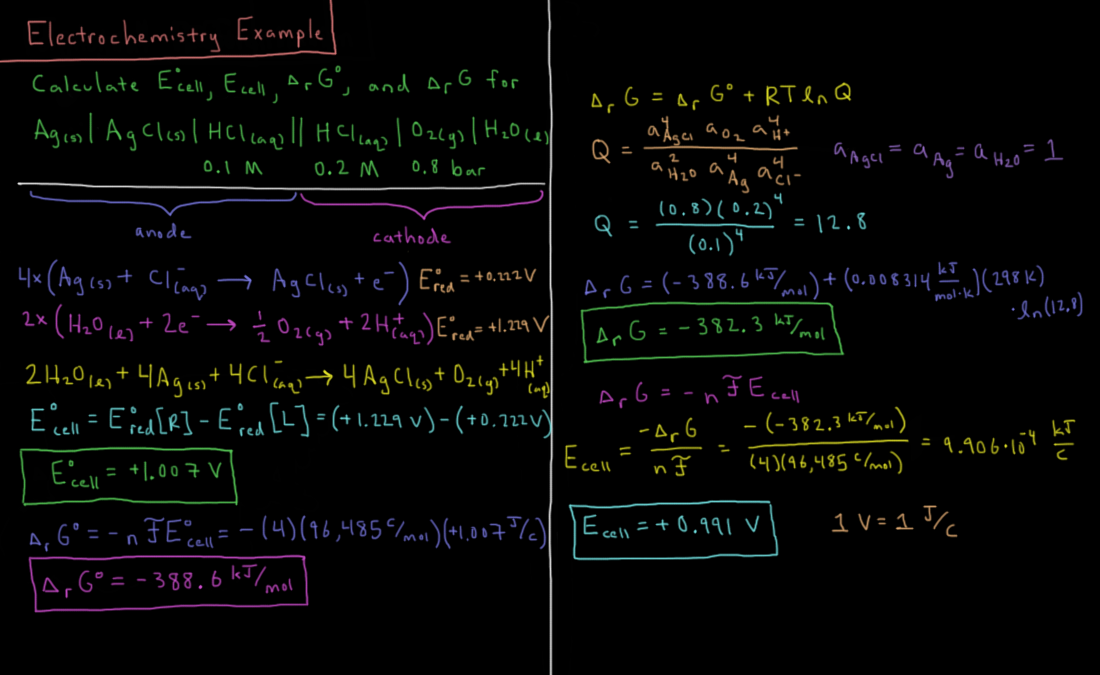 Electrochemistry Example
Calculate E°cell, Ecell, ΔrG°, and ΔrG for
Ag(s) | AgCl(s) | HCl(aq) || HCl(aq) | O₂(g) | H₂O(l)
0.1 M 0.2 M 0.8 bar
anode cathode
4×(Ag(s) + Cl⁻(aq) → AgCl(s) + e⁻) E°red = +0.222 V
2×(H₂O(l) + 2e⁻ → 1/2 O₂(g) + 2H⁺(aq)) E°red = +1.229 V
2H₂O(l) + 4Ag(s) + 4Cl⁻(aq) → 4AgCl(s) + O₂(g) + 4H⁺(aq)
E°cell = E°red[R] - E°red[L] = (+1.229 V) - (+0.222 V)
E°cell = +1.007 V
ΔrG° = -nFE°cell = -(4)(96,485 C/mol)(+1.007 J/C)
ΔrG° = -388.6 kJ/mol
ΔrG = ΔrG° + RT ln Q
Q = a⁴AgCl aO₂ a⁴H⁺ / a²H₂O a⁴Ag a⁴Cl⁻ aAgCl = aAg = aH₂O = 1
Q = (0.8)(0.2)⁴ / (0.1)⁴ = 12.8
ΔrG = (-388.6 kJ/mol) + (0.008314 kJ/mol·K)(298 K)
·ln(12.8)
ΔrG = -382.3 kJ/mol
ΔrG = -nFEcell
Ecell = -ΔrG / nF = -(-382.3 kJ/mol) / (4)(96,485 C/mol) = 9.906·10⁻⁴ kJ/C
Ecell = +0.991 V 1 V = 1 J/C